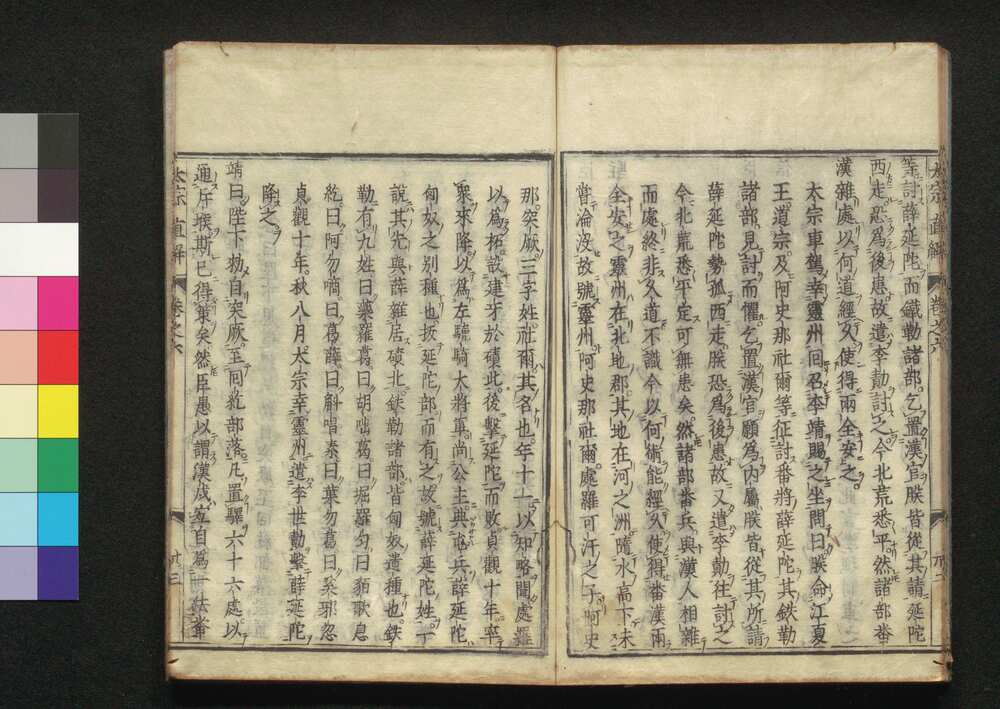 太宗直解 卷之六
等討薛延陀而鐵勒諸部乞置漢官朕皆從其請延陀
西走恐爲後患故遣李勣討之今北荒悉平然諸部番
漢雜處以何道經久使得兩全安之
太宗車駕幸靈州回召李靖賜之坐問曰朕命江夏
王道宗及阿史那社爾等征討番將薛延陀其鉄勒
諸部見討而懼乞置漢官願爲内屬朕皆從其所請
薛延陀勢孤西走朕恐爲後患故又遣李勣往討之
今北荒悉平定可無患矣然諸部番兵與漢人相雜
而處終非久道不識今以何術能經久使得番漢兩
全安之靈州在北地郡其地在河之洲隨水高下未
嘗淪没故號靈州阿史那社爾處羅可汗之子阿史
那突厥三字姓社爾其名也年十一以知略聞處羅
以爲柘設建牙於磧北後擊延陀而敗貞觀十年率
衆來降以爲左驍騎大將軍尚公主典屯兵薛延陀
匈奴之別種也扳延陀部而有之故號薛延陀姓一
說其先與薛雜居磧北鉄勒諸部皆匈奴遺種也鉄
勒有九姓曰藥羅葛曰胡咄葛曰掘羅勿曰貊歌息
紇曰阿勿嘀曰葛薛曰斛嗢素曰葉勿葛曰奚邪忽
貞觀十年秋八月太宗幸靈州遣李世勣擊薛延陀
降之
靖曰陛下勑自突厥至回紇部落凡置驛六十六處以
通斥堠斯已得策矣然臣愚以謂漢戍宜自爲一法番
太宗直解 卷之六